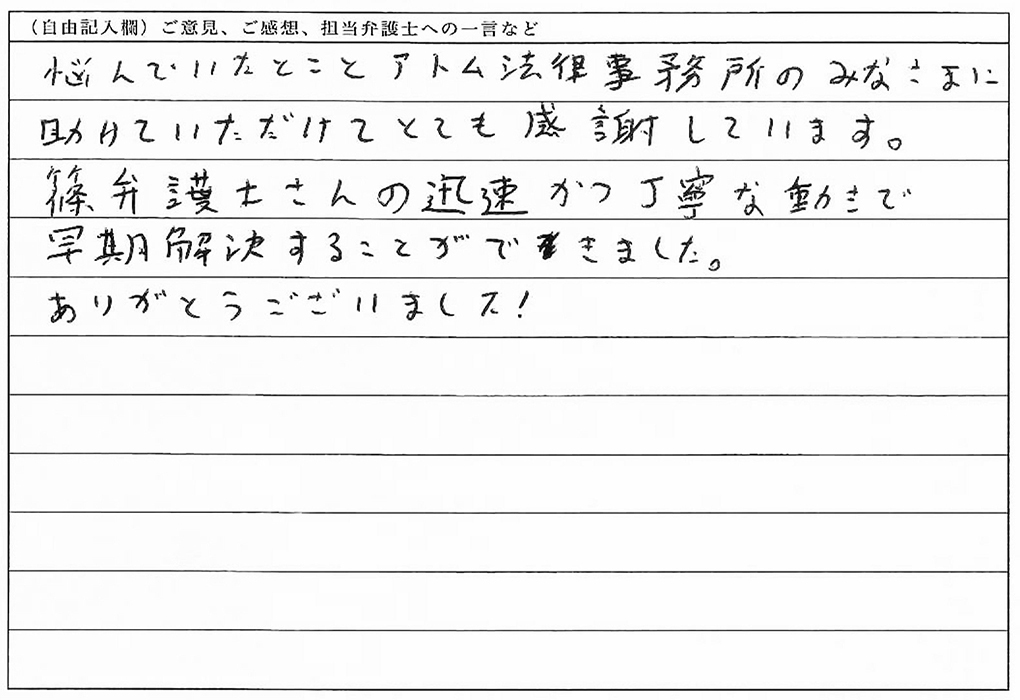 （自由記入欄）ご意見、ご感想、担当弁護士への一言など
悩んでいたとこと アトム法律事務所のみなさまに
助けていただけてとても感謝しています。
篠弁護士さんの迅速かつ丁寧な動きで
早期解決することができました。
ありがとうございました！